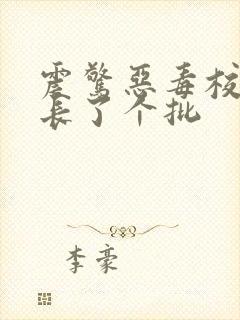 震惊恶毒校
长了个批
李豪